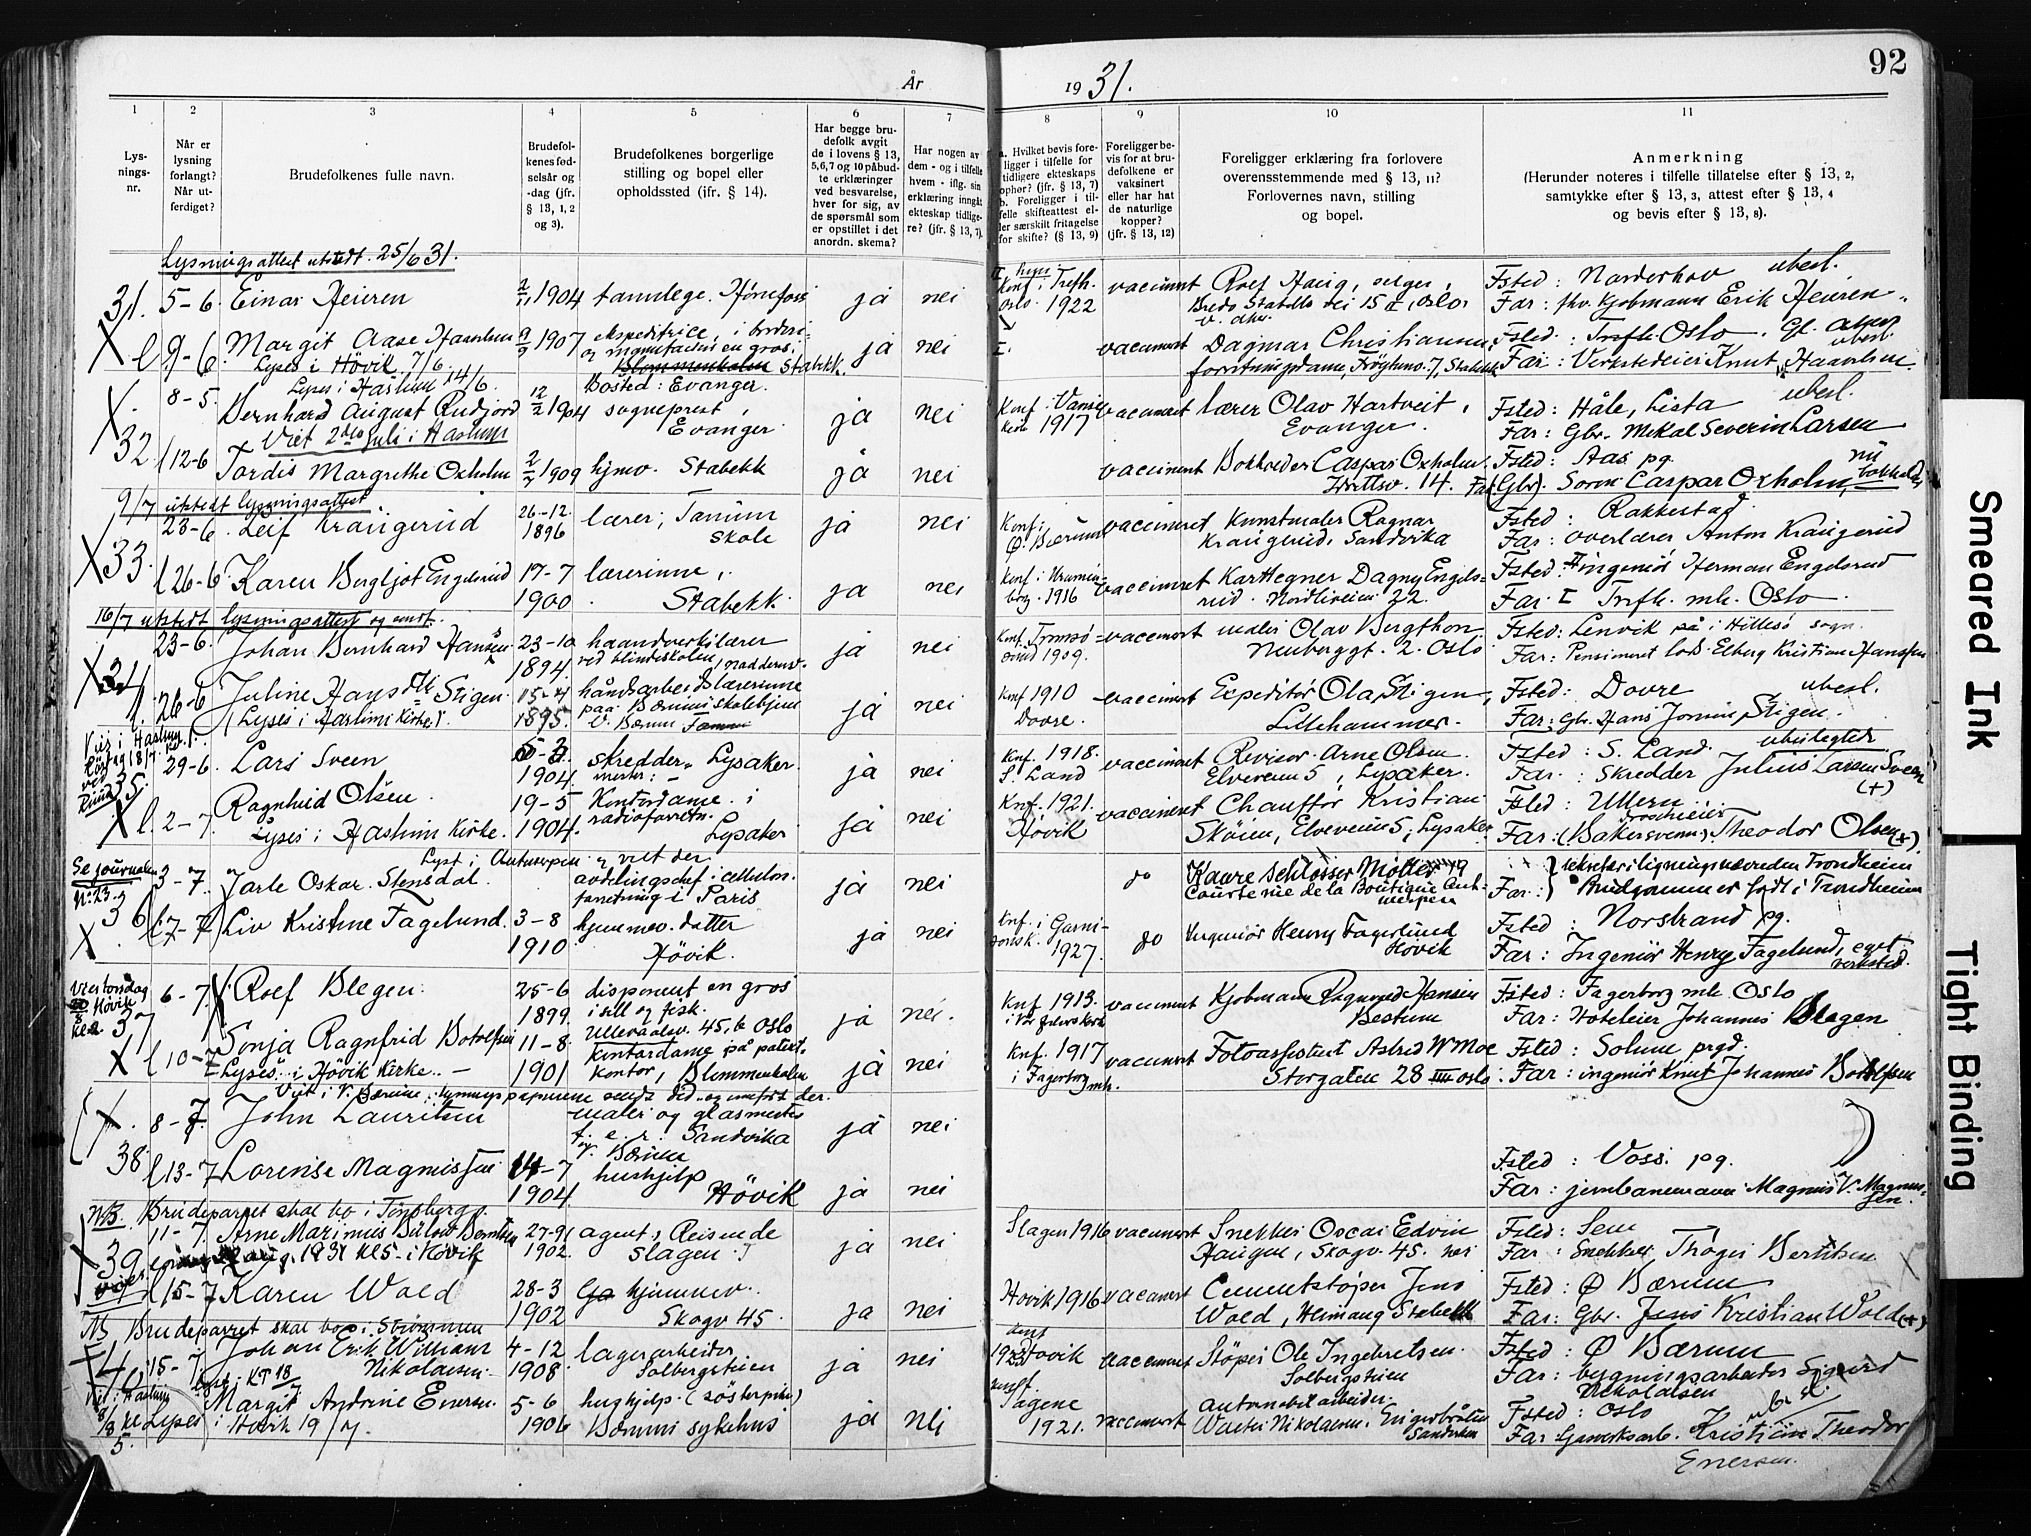 92
År 1931.
1 2 3 4 5 6 7 8 9 10 11
Lys-
nings-
nr.
Når er
lysning
forlangt?
Når ut-
ferdiget?
Brudefolkenes fulle navn.
Brudefol-
kenes fød-
selsår og
-dag (jfr.
§ 13, 1, 2
og 3).
Brudefolkenes borgerlige
stilling og bopel eller
opholdssted (jfr. § 14).
Har begge bru-
defolk avgit
de i lovens § 13,
5,6,7 og 10 påbud-
te erklæringer
ved besvarelse,
hver for sig, av
de spørsmål som
er opstillet i det
anordn. skema?
Har nogen av
dem - og i tilfelle
hvem - iflg. sin
erklæring inngåt
ekteskap tidlige-
re? (jfr. § 13, 7).
a. Hvilket bevis fore-
ligger i tilfelle for
tidligere ekteskaps
ophør? (jfr. § 13, 7)
b. Foreligger i til-
felle skifteattest el-
ler særskilt fritagelse
for skifte? (§ 13, 9)
Foreligger be-
vis for at bru-
defolkene er
vaksinert
eller har hat
de naturlige
kopper?
(jfr. § 13, 12)
Foreligger erklæring fra forlovere
overensstemmende med § 13, 11?
Forlovernes navn, stilling
og bopel.
Anmerkning
(Herunder noteres i tilfelle tillatelse efter § 13, 2,
samtykke efter § 13, 3, attest efter § 13, 4
og bevis efter § 13, 8).
Lysningsattest utstedt 25/6 31.
31. 5-6 Einar Heieren 1904 tannlege. Hønefoss ja nei 1922 vaccinert Rolf Haug, selger, Fsted: Norderhov ubesl.
Oslo. Far: fhv. Kjøbmann Erik Heieren
9-6 Margit Aase Haarløm 9/9 1907 ekspeditrice, i broderi- ja nei vaccinert Dagmar Christiansen, Fsted: Trefk. Oslo. ubesl.
Lyses i Høvik 7/6 og manufaktur en gros, Stabekk Far: Verkstedeier Knut
Lyses i Haslum 14/6.
8-5. Bernhard August Rudjord 12/2 1904 Bosted: Evanger. sogneprest, Evanger. ja nei Konf. i Vanse kirke 1917 vaccinert Lærer Olav Hartveit, Evanger. Fsted: Håle, Lista ubesl.
Viet 2den juli i Haslum Far: Gbr. Mikal Severin Larsen
32. 12-6 Tordis Margrethe Oxholm 1909 hjmv. Stabekk ja nei vaccinert Bokholder Caspar Oxholm, Fsted: Aas pg.
14. Far (Gbr). Søren Caspar Oxholm, nu bokholder
9/7 utstedt lysningsattest
33 23-6 Leif Kraugerud 26-12. 1896 lærer, Tanum skole ja nei Konf. i Ø. Bærum vaccineret Kunstmaler Ragnar Kraugerud, Sandvika Fsted: Rakkestad
Far: overlærer Anton Kraugerud
26-6 Karen Bergljot Engelsrud 17-7 1900 lærerinne, Stabekk ja nei 1916 vaccineret Dagny Engels-
rud. Nordliveien 22. Fsted: II ingeniør Herman Engelsrud
Far: I Trefk. mh. Oslo
16/7 utstedt lysningsattest og sendt.
34 23-6. Johan Bernhard Hansen 23-10 1894. haandverkslærer ved blindeskolen, ja nei Konf. Tromsø 1909. vaccinert maler Olav Bergthon Neuberggt. 2. Oslo Fsted: Lenvik på i Hillesø sogn
Far: Pensioneret los Elberg Kristian Hanssen
26-6 Juline Stigen 15-4 1895. håndarbeidslærerinne paa Bærums skolehjem V. Bærum ja nei Konf 1910 Dovre. vaccinert Expeditør Ola Stigen, Lillehammer. Fsted: Dovre ubesl.
Lyses i Haslum Kirke. Far: Gbr. Hans Stigen.
Vies i Haslum lørdag 18/7
35. 29-6. Lars Sveen 1904. skredder- mester: Lysaker. ja nei Knf. 1918. S. Land vaccinert Revisor Arne Olsen Elveveien 5, Lysaker. Fsted: S. Land. ubeslegtede
Far: Skredder Julius Larsen Sveen (+)
2-7 Ragnhild Olsen. 19-5 1904. Kontordame i radioforretn. Lysaker ja nei Knf. 1921. Høvik vaccineret Chauffør Kristian Skøien, Elveveien 5, Lysaker Fsted: Ullern
Lyses i Haslum Kirke. Far: (Bakersvenn) Theodor Olsen (+)
Se journalen No. 23.
36 3-7. Jarle Oskar Stensdal Lyst i Antwerpen og viet der avdelingschef i celluloseforretning i Paris ja do Kaare Schlosser Møller Courte rue de la Boutique Ant-
werpen Far: sekretær i ligningsnævnden Trondheim
Brudgommen er født i Trondheim
7-7 Liv Kristine Fagelund 3-8 1910 hjemmev. datter Høvik. ja nei Knf. i Garni-
sonsk. 1927. do Ingeniør Henry Fagerlund Høvik Fsted: Norstrand pg.
Far: Ingeniør Henry Fagelund, eget verksted.
37 6-7. Rolf Blegen 25-6 1899. disponent en gros i sill og fisk. Ullevaalsv. 45, b Oslo ja nei. Knf. 1913. i Vor frelsers kirke vaccinert Kjøbmann Hansen Bestum Fsted: Fagerborg mh. Oslo
Far: Hoteleier Johannes Blegen
10-7 Sonja Ragnfrid Botolfsen 11-8 1901 Kontordame på patent-
kontor, Blommenholm ja nei Knf. 1917 i Fagerborg mh. vaccinert Fotoassistent Astrid W Moe Storgaten 28 IIII Oslo. Fsted: Solum prgd.
Lyses: i Høvik Kirke. Far: ingeniør Knut Johannes Botolfsen
Viet i V. Bærum,
8-7. John Lauritsen maler og glasmester Sandvika V. Bærum ja nei
38 13-7 Lorense Magnussen 14-7 1904. hushjelp Høvik ja nei Fsted: Voss pg.
Far: jernbanemann Magnus V. Magnus-
sen.
NB. Brudeparret skal bo i Tønsberg.
39 11-7. Arne Marinius Bülow Berntsen 27-9 1902. agent, Reisende Slagen. ja nei Slagen 1916 vaccinert Snekker Oscar Edvin Haugen, Skogv. 45. Fsted: Sem
aug. 1931 kl 5. i Høvik Far: Snekker, Thoger Berntsen
15-7 Karen Wold 28-3 1902 hjemmev. Skogv 45. ja nei Høvik 1916 vaccinert Cementstøper Jens Wold, Heimaug Stabekk Fsted: Ø Bærum
Far: Gbr. Jens Kristian Wold (+)
NB Brudeparret skal bo i Strømmen
40 15-7 Johan Erik William Nikolaisen 4-12 1908. lagerarbeider Solbergveien ja nei Høvik vaccinert Støper Ole Ingebretsen. Solbergveien Fsted: Ø Bærum
Far: bygningsarbeider Sigurd Nikolaisen
Margit Andrine Enersen 5-6 1906 hushjelp. (søsterpike) Bærums sykehus ja nei Sagene 1921. vaccinert automobilarbeider. Walter Nikolaisen, Engerbråten Sandviken Fsted: Oslo
Lyses i Høvik 19/7. Far: Gasverksarb. Kristian Theodor
Enersen.
Smeared Ink
Tight Binding